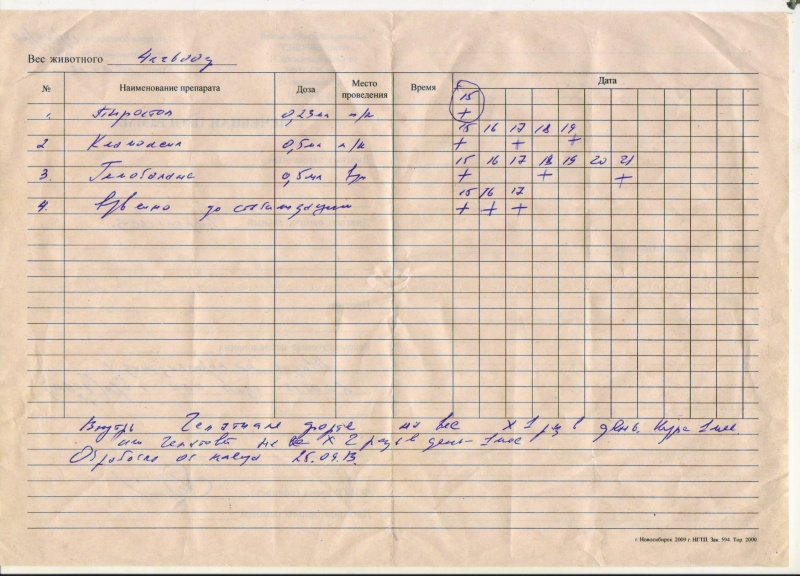 Вес животного 4кг600г
№ Наименование препарата Доза Место проведения Время Дата
15
1. Пиростоп 0,23мл п/к +
15 16 17 18 19
2 Кламоксил 0,5мл п/к + + +
15 16 17 18 19 20 21
3. Гемобаланс 0,5мл в/м + + +
15 16 17
4. В/венно до стабилизации + + +
Внутрь форте на вес х 1 р в день. Курс 1 мес
или на х 2 раза в день - 1 мес
Обработка от клеща 25.04.13.
г. Новосибирск 2009 г. НГТП. Зак. 594. Тир. 2000.